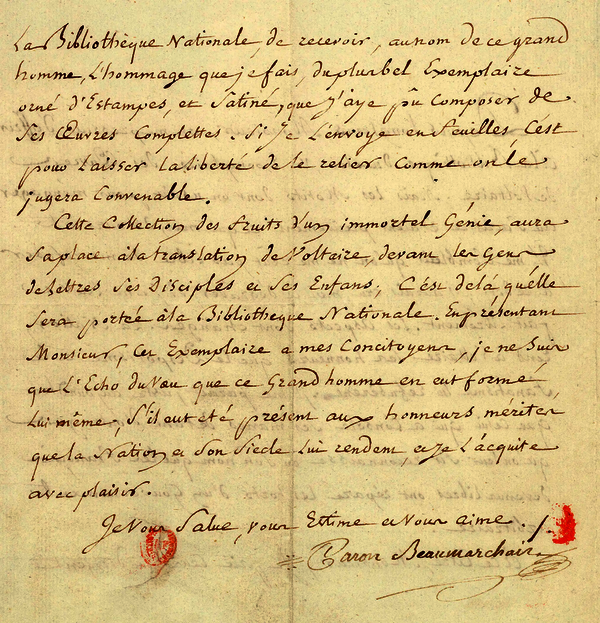 La Bibliothèque Nationale, de recevoir, au nom de ce grand
homme, L'hommage que je fais, du plus bel Exemplaire
orné d'Estampes, et Satiné, que J'aye pû Composer de
Ses Œuvres Complettes. Si Je L'envoye en feuilles, C'est
pour Laisser La liberté de le relier Comme on le
jugera Convenable.
Cette Collection des fruits d'un immortel Génie, aura
Sa place à la translation de Voltaire, devant les Gens
de Lettres Ses Disciples et Ses Enfans; C'est de là qu'elle
Sera portée à la Bibliothèque Nationale. En présentant
Monsieur, Cet Exemplaire a mes Concitoyens, je ne Suis
que L'Echo du Vœu que ce Grand homme en eut formé
Lui même, S'il eut été présent aux honneurs mérités
que la Nation et Son Siecle Lui rendent, et je L'acquite
avec plaisir.
Je Vous Salue, vous Estime et Vous aime. /.
Caron Beaumarchais